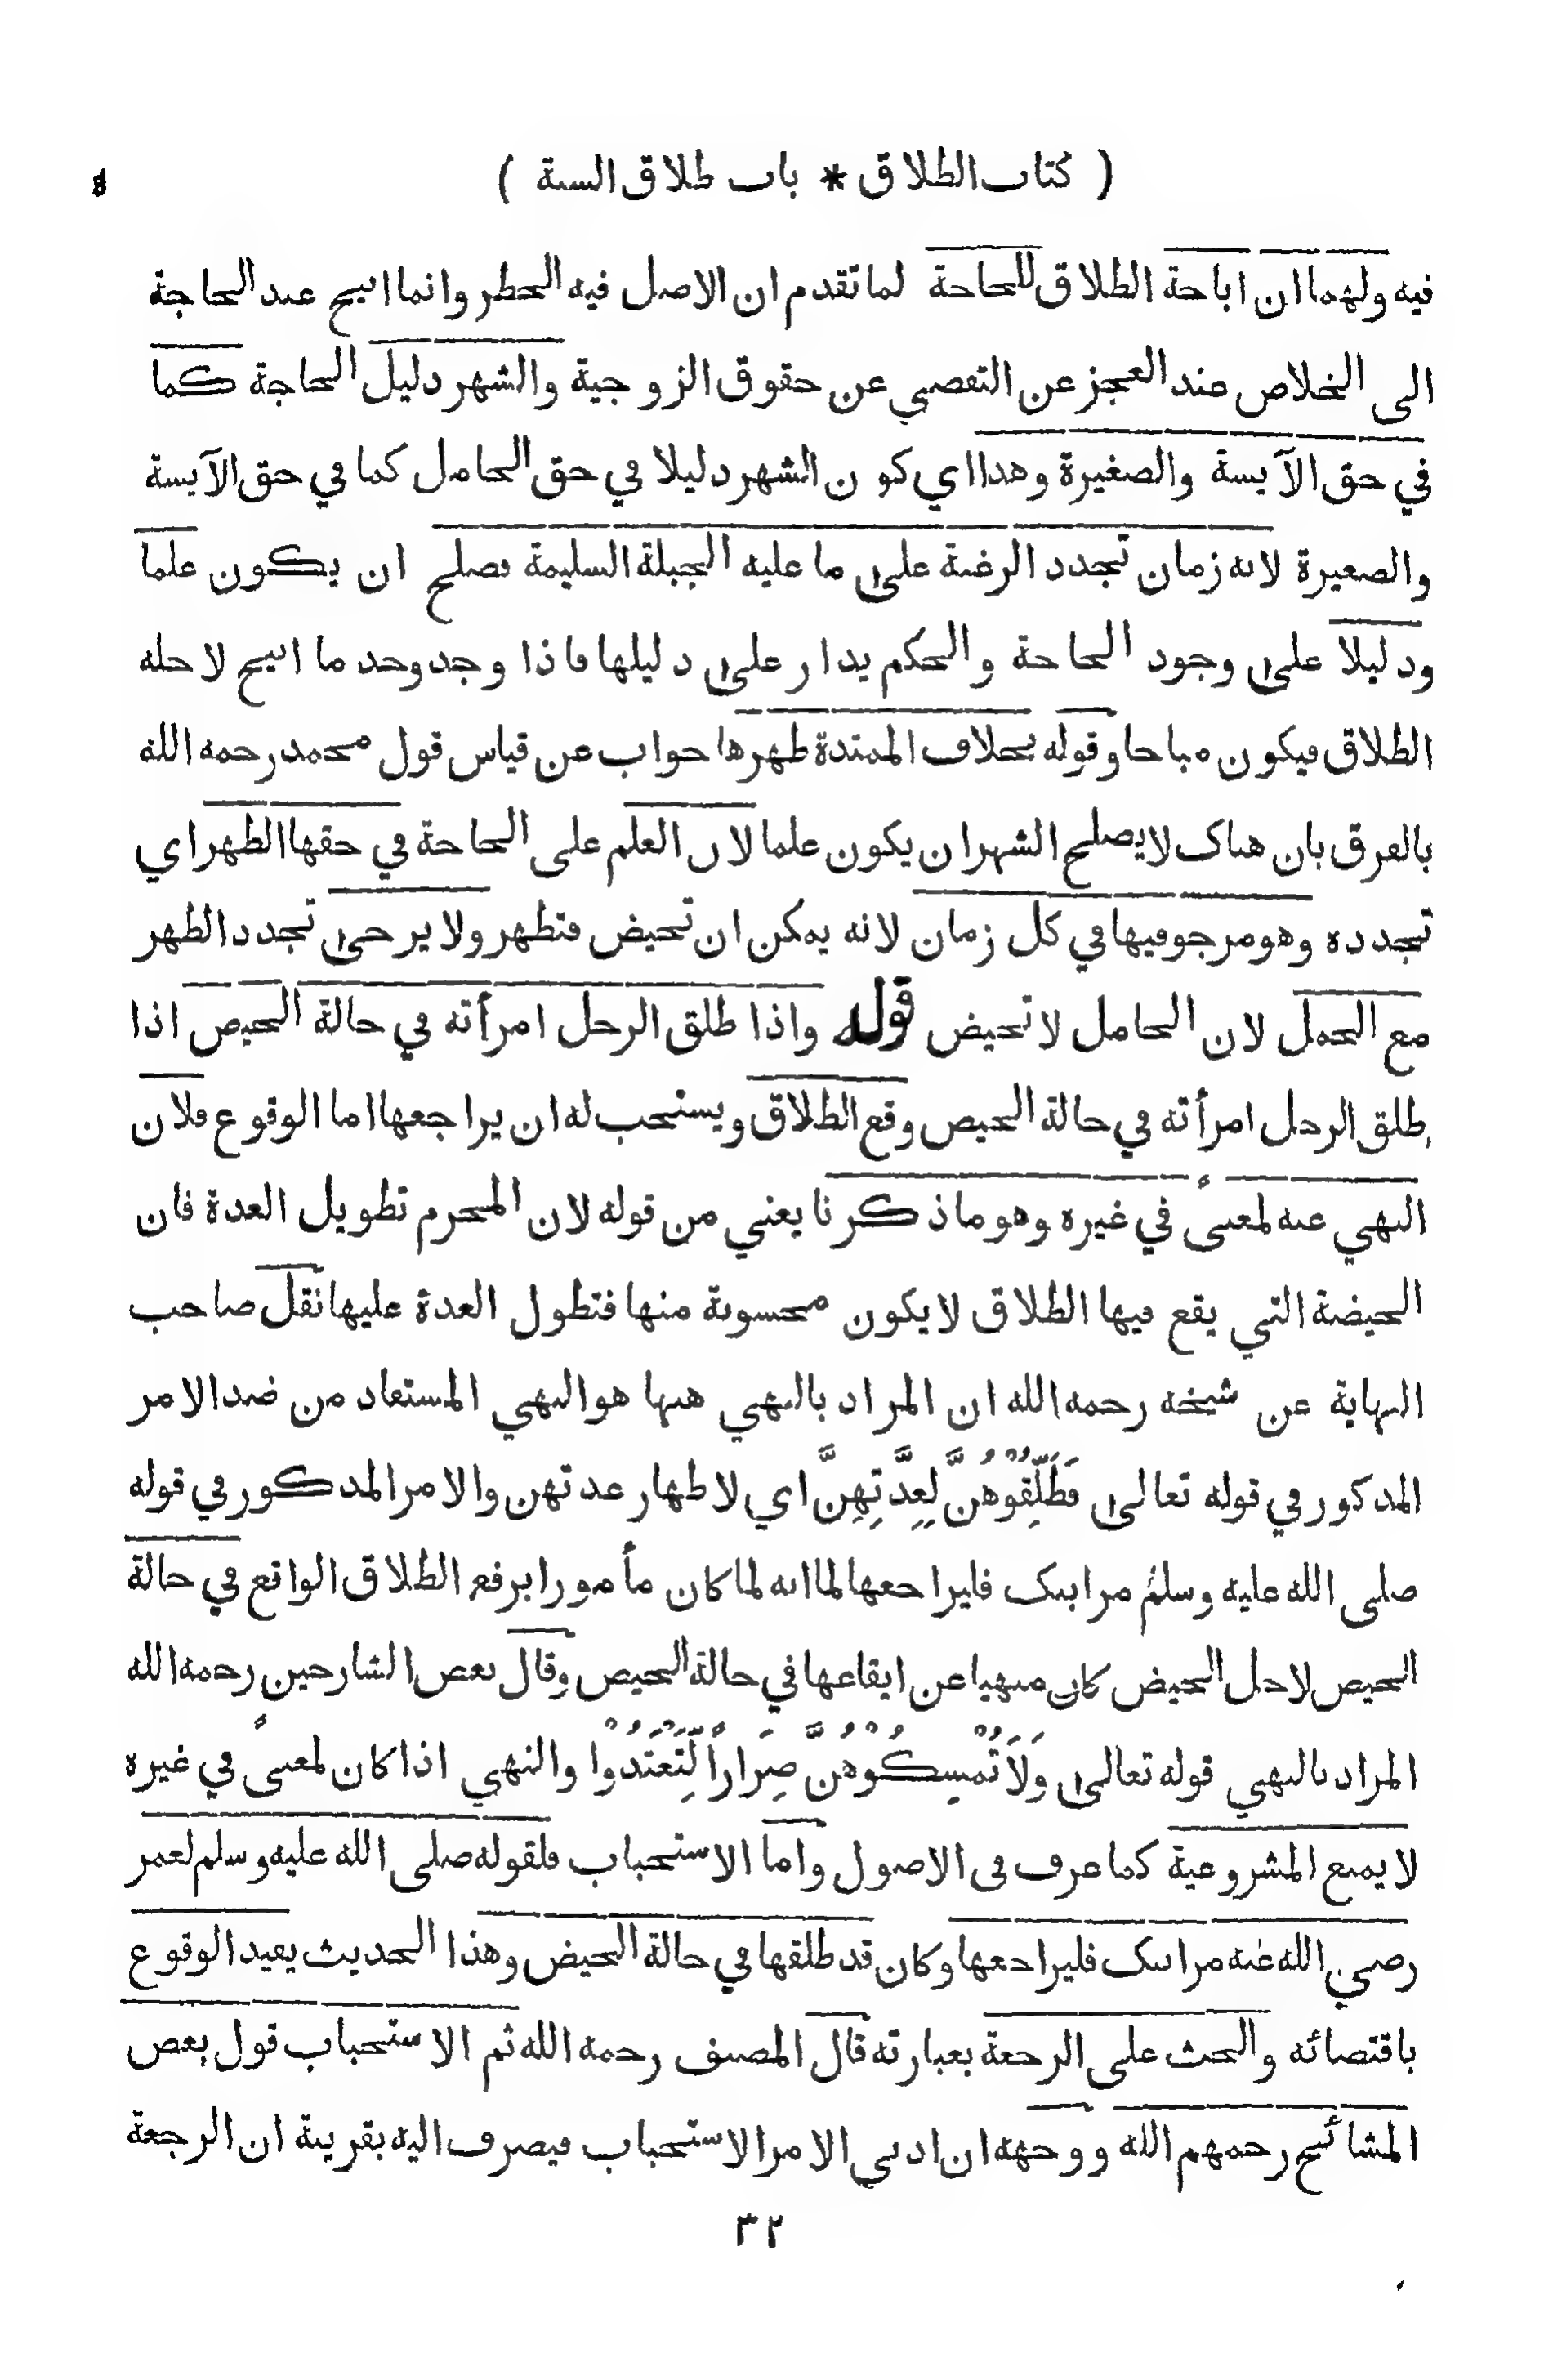 ( كتاب الطلاق * باب طلاق السنة )
فيه ولهما ان اباحة الطلاق للحاجة لما تقدم ان الاصل فيه الحظر وانما ابيح عند الحاجة
الى الخلاص عند العجز عن التفصي عن حقوق الزوجية والشهر دليل الحاجة كما
في حق الآيسة والصغيرة وهذا اي كون الشهر دليلا في حق الحامل كما في حق الآيسة
والصغيرة لانه زمان تجدد الرغبة على ما عليه الجبلة السليمة فصلح ان يكون علما
ودليلا على وجود الحاجة والحكم يدار على دليلها فاذا وجد وجد ما ابيح لاجله
الطلاق فيكون مباحا وقوله بخلاف الممتدة طهرها جواب عن قياس قول محمد رحمه الله
بالفرق بان هناك لا يصلح الشهر ان يكون علما لان العلم على الحاجة في حقها الطهر اي
تجدده وهو مرجو فيها في كل زمان لانه يمكن ان تحيض فتطهر ولا يرجى تجدد الطهر
مع الحمل لان الحامل لا تحيض قوله واذا طلق الرجل امرأته في حالة الحيض اذا
طلق الرجل امرأته في حالة الحيض وقع الطلاق ويستحب له ان يراجعها اما الوقوع فلان
النهي عنه لمعنىً في غيره وهو ما ذكرنا يعني من قوله لان المحرم تطويل العدة فان
الحيضة التي يقع فيها الطلاق لا يكون محسوبة منها فتطول العدة عليها نقل صاحب
النهاية عن شيخه رحمه الله ان المراد بالنهي ههنا هو النهي المستفاد من ضد الامر
المذكور في قوله تعالى فَطَلِّقُوْهُنَّ لِعِدَّتِهِنَّ اي لاطهار عدتهن والامر المذكور في قوله
صلى الله عليه وسلم مر ابنك فليراجعها لما انه لما كان مأمورا برفع الطلاق الواقع في حالة
الحيض لاجل الحيض كان منهيا عن ايقاعها في حالة الحيض وقال بعض الشارحين رحمه الله
المراد بالنهي قوله تعالى وَلَا تُمْسِكُوْهُنَّ ضِرَاراً لِّتَعْتَدُوْا والنهي اذا كان لمعنىً في غيره
لا يمنع المشروعية كما عرف في الاصول واما الاستحباب فلقوله صلى الله عليه وسلم لعمر
رضي الله عنه مر ابنك فليراجعها وكان قد طلقها في حالة الحيض وهذا الحديث يفيد الوقوع
باقتضائه والحث على الرجعة بعبارته قال المصنف رحمه الله ثم الاستحباب قول بعض
المشائخ رحمهم الله ووجهه ان ادنى الامر الاستحباب فيصرف اليه بقرينة ان الرجعة
٣٢